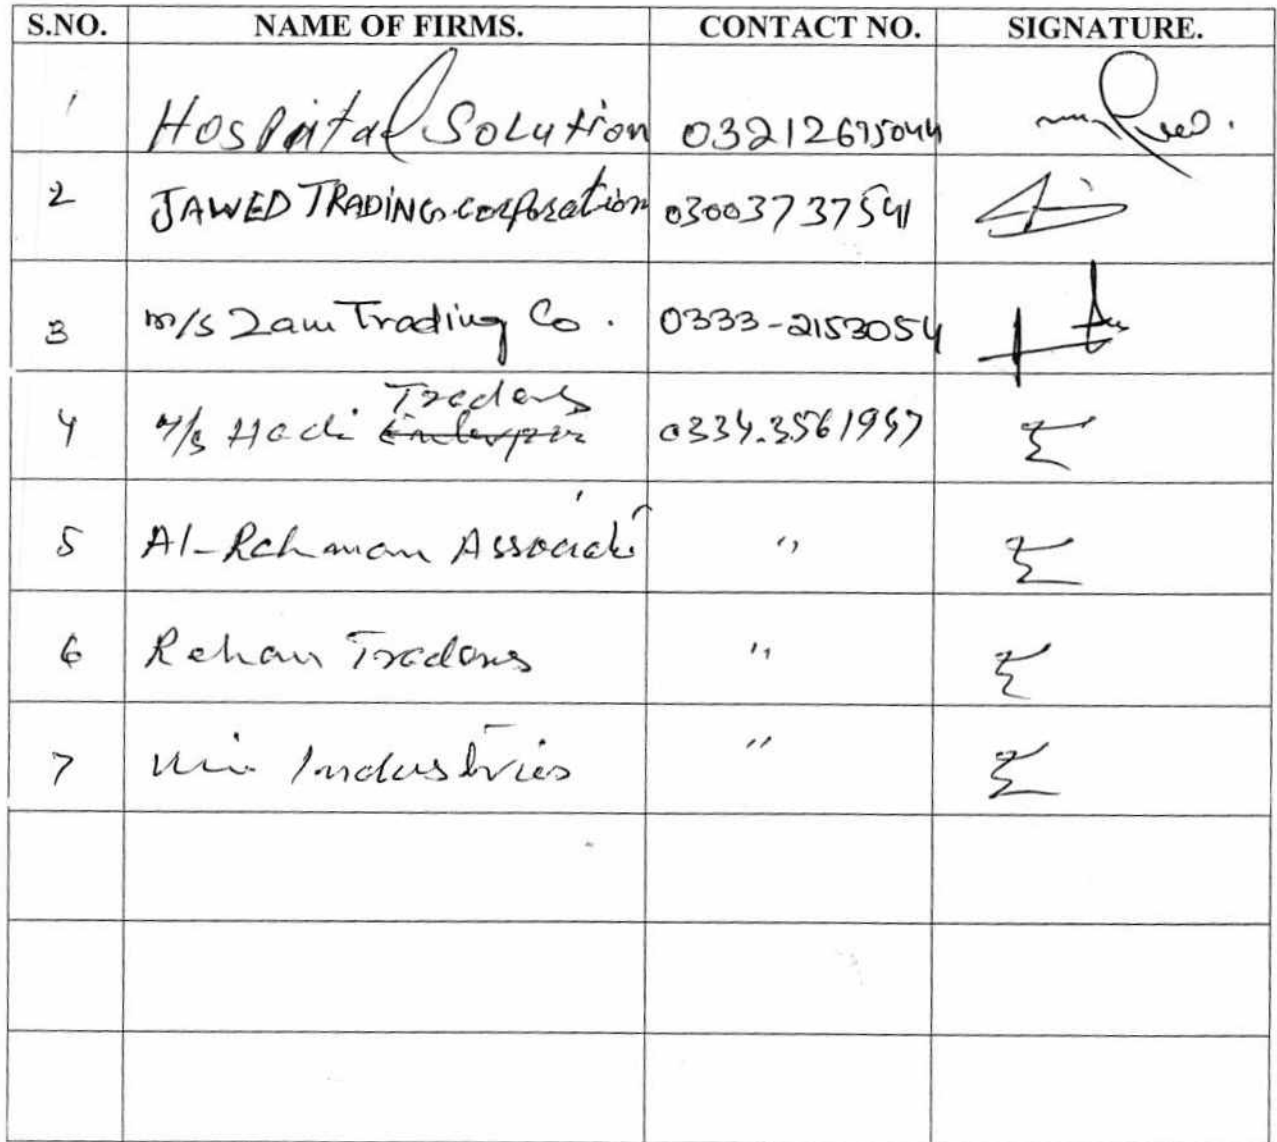 S.NO. NAME OF FIRMS. CONTACT NO. SIGNATURE.
1 Hospital Solution 03212675044
2 JAWED TRADING corporation 03003737541
3 m/s Zam Trading Co. 0333-2153054
Traders
4 M/s Hadi Enterpri 0334.3561947
5 Al-Rehman Associate "
6 Rehan Traders "
7 Industries "